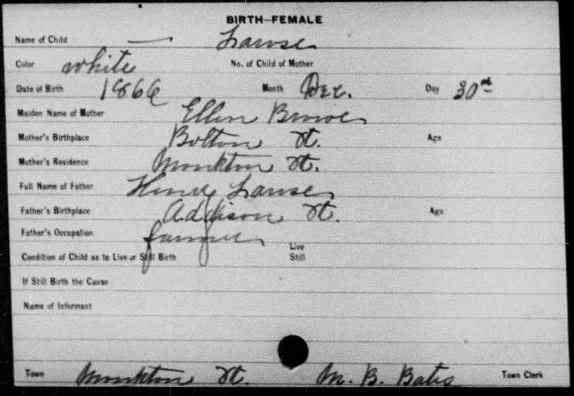 BIRTH—FEMALE
Name of Child — Larose
Color white No. of Child of Mother
Date of Birth 1866 Month Dec. Day 30
Maiden Name of Mother Ellen
Mother's Birthplace Bolton Vt. Age
Mother's Residence Monkton Vt.
Full Name of Father Henry Larose
Father's Birthplace Addison Vt. Age
Father's Occupation farmer
Condition of Child as to Live or Still Birth Live Still
If Still Birth the Cause
Name of Informant
Town Monkton Vt. M. B. Bates Town Clerk